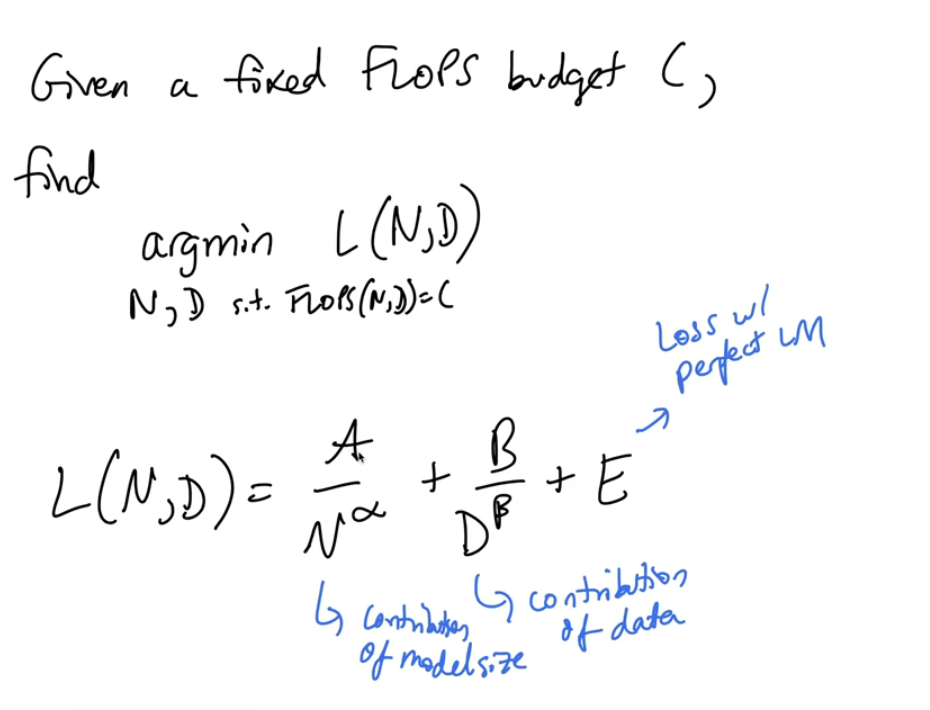 Given a fixed FLOPS budget C,
find
argmin L(N,D)
N, D s.t. FLOPS(N,D)=C
Loss w/
perfect LM
L(N,D) = A/N^α + B/D^β + E
contribution
of model size
contribution
of data